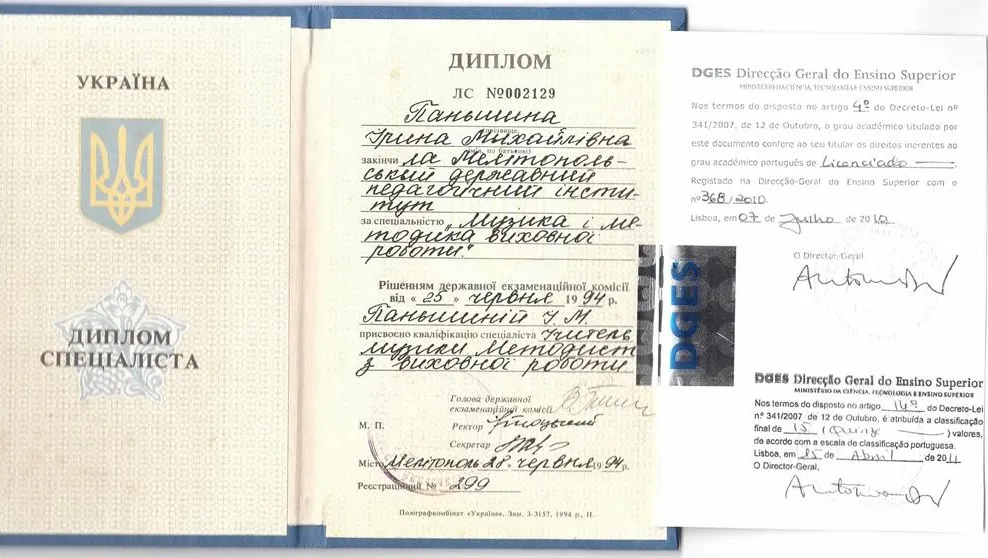 УКРАЇНА
ДИПЛОМ
СПЕЦІАЛІСТА
ДИПЛОМ
ЛС №002129
Паньшина
(прізвище,
Ірина Михайлівна
ім'я, по батькові)
закінчи ла Мелітополь-
ський державний
педагогічний інсти-
тут
за спеціальністю „Музика і ме-
тодика виховної
роботи."
Рішенням державної екзаменаційної комісії
від « 25 » червня 1994 р.
Паньшиній І. М.
присвоєно кваліфікацію спеціаліста Учитель
музики Методист
з виховної роботи
Голова державної
екзаменаційної комісії
М. П.
Ректор
Секретар
Місто Мелітополь 28 червня 1994 р.
Реєстраційний № 299
Поліграфкомбінат «Україна». Зам. 3-3157, 1994 р., II.
DGES Direcção Geral do Ensino Superior
MINISTÉRIO DA CIÊNCIA, TECNOLOGIA E ENSINO SUPERIOR
Nos termos do disposto no artigo 4º do Decreto-Lei nº
341/2007, de 12 de Outubro, o grau académico titulado por
este documento confere ao seu titular os direitos inerentes ao
grau académico português de Licenciado
Registado na Direcção-Geral do Ensino Superior com o
nº 368/2010
Lisboa, em 07 de Julho de 2010
O Director-Geral
DGES
DGES Direcção Geral do Ensino Superior
MINISTÉRIO DA CIÊNCIA, TECNOLOGIA E ENSINO SUPERIOR
Nos termos do disposto no artigo 14º do Decreto-Lei
nº 341/2007, de 12 de Outubro, é atribuída a classificação
final de 15 (Quinze) valores,
de acordo com a escala de classificação portuguesa.
Lisboa, em 15 de Abril de 2011
O Director-Geral,